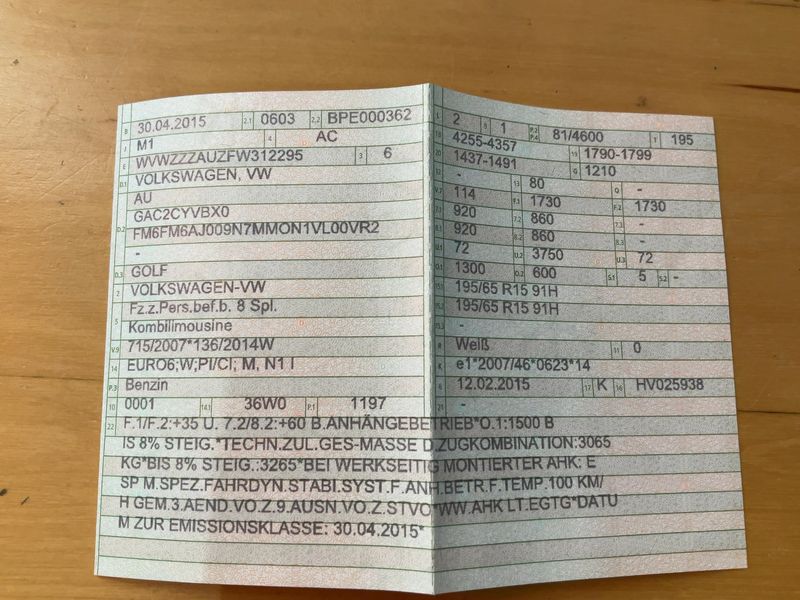 B 30.04.2015 2.1 0603 2.2 BPE000362
J M1 4 AC
E WVWZZZAUZFW312295 3 6
D.1 VOLKSWAGEN, VW
AU
GAC2CYVBX0
D.2 FM6FM6AJ009N7MMON1VL00VR2
-
D.3 GOLF
2 VOLKSWAGEN-VW
Fz.z.Pers.bef.b. 8 Spl.
5 Kombilimousine
V.9 715/2007*136/2014W
14 EURO6;W;PI/CI; M, N1 I
P.3 Benzin
10 0001 14.1 36W0 P.1 1197
L 2 9 1 P.2 P.4 81/4600 T 195
18 4255-4357 19 1790-1799
20 1437-1491 G 1210
12 - 13 80 Q -
V.7 114 F.1 1730 F.2 1730
7.1 920 7.2 860 7.3 -
8.1 920 8.2 860 8.3 -
U.1 72 U.2 3750 U.3 72
O.1 1300 O.2 600 S.1 5 S.2 -
15.1 195/65 R15 91H
15.2 195/65 R15 91H
15.3 -
R Weiß 11 0
K e1*2007/46*0623*14
6 12.02.2015 17 K 16 HV025938
21 -
22 F.1/F.2:+35 U. 7.2/8.2:+60 B.ANHÄNGEBETRIEB*O.1:1500 B
IS 8% STEIG.*TECHN.ZUL.GES-MASSE D.ZUGKOMBINATION:3065
KG*BIS 8% STEIG.:3265*BEI WERKSEITIG MONTIERTER AHK: E
SP M.SPEZ.FAHRDYN.STABI.SYST.F.ANH.BETR.F.TEMP.100 KM/
H GEM.3.AEND.VO.Z.9.AUSN.VO.Z.STVO*WW.AHK LT.EGTG*DATU
M ZUR EMISSIONSKLASSE: 30.04.2015*